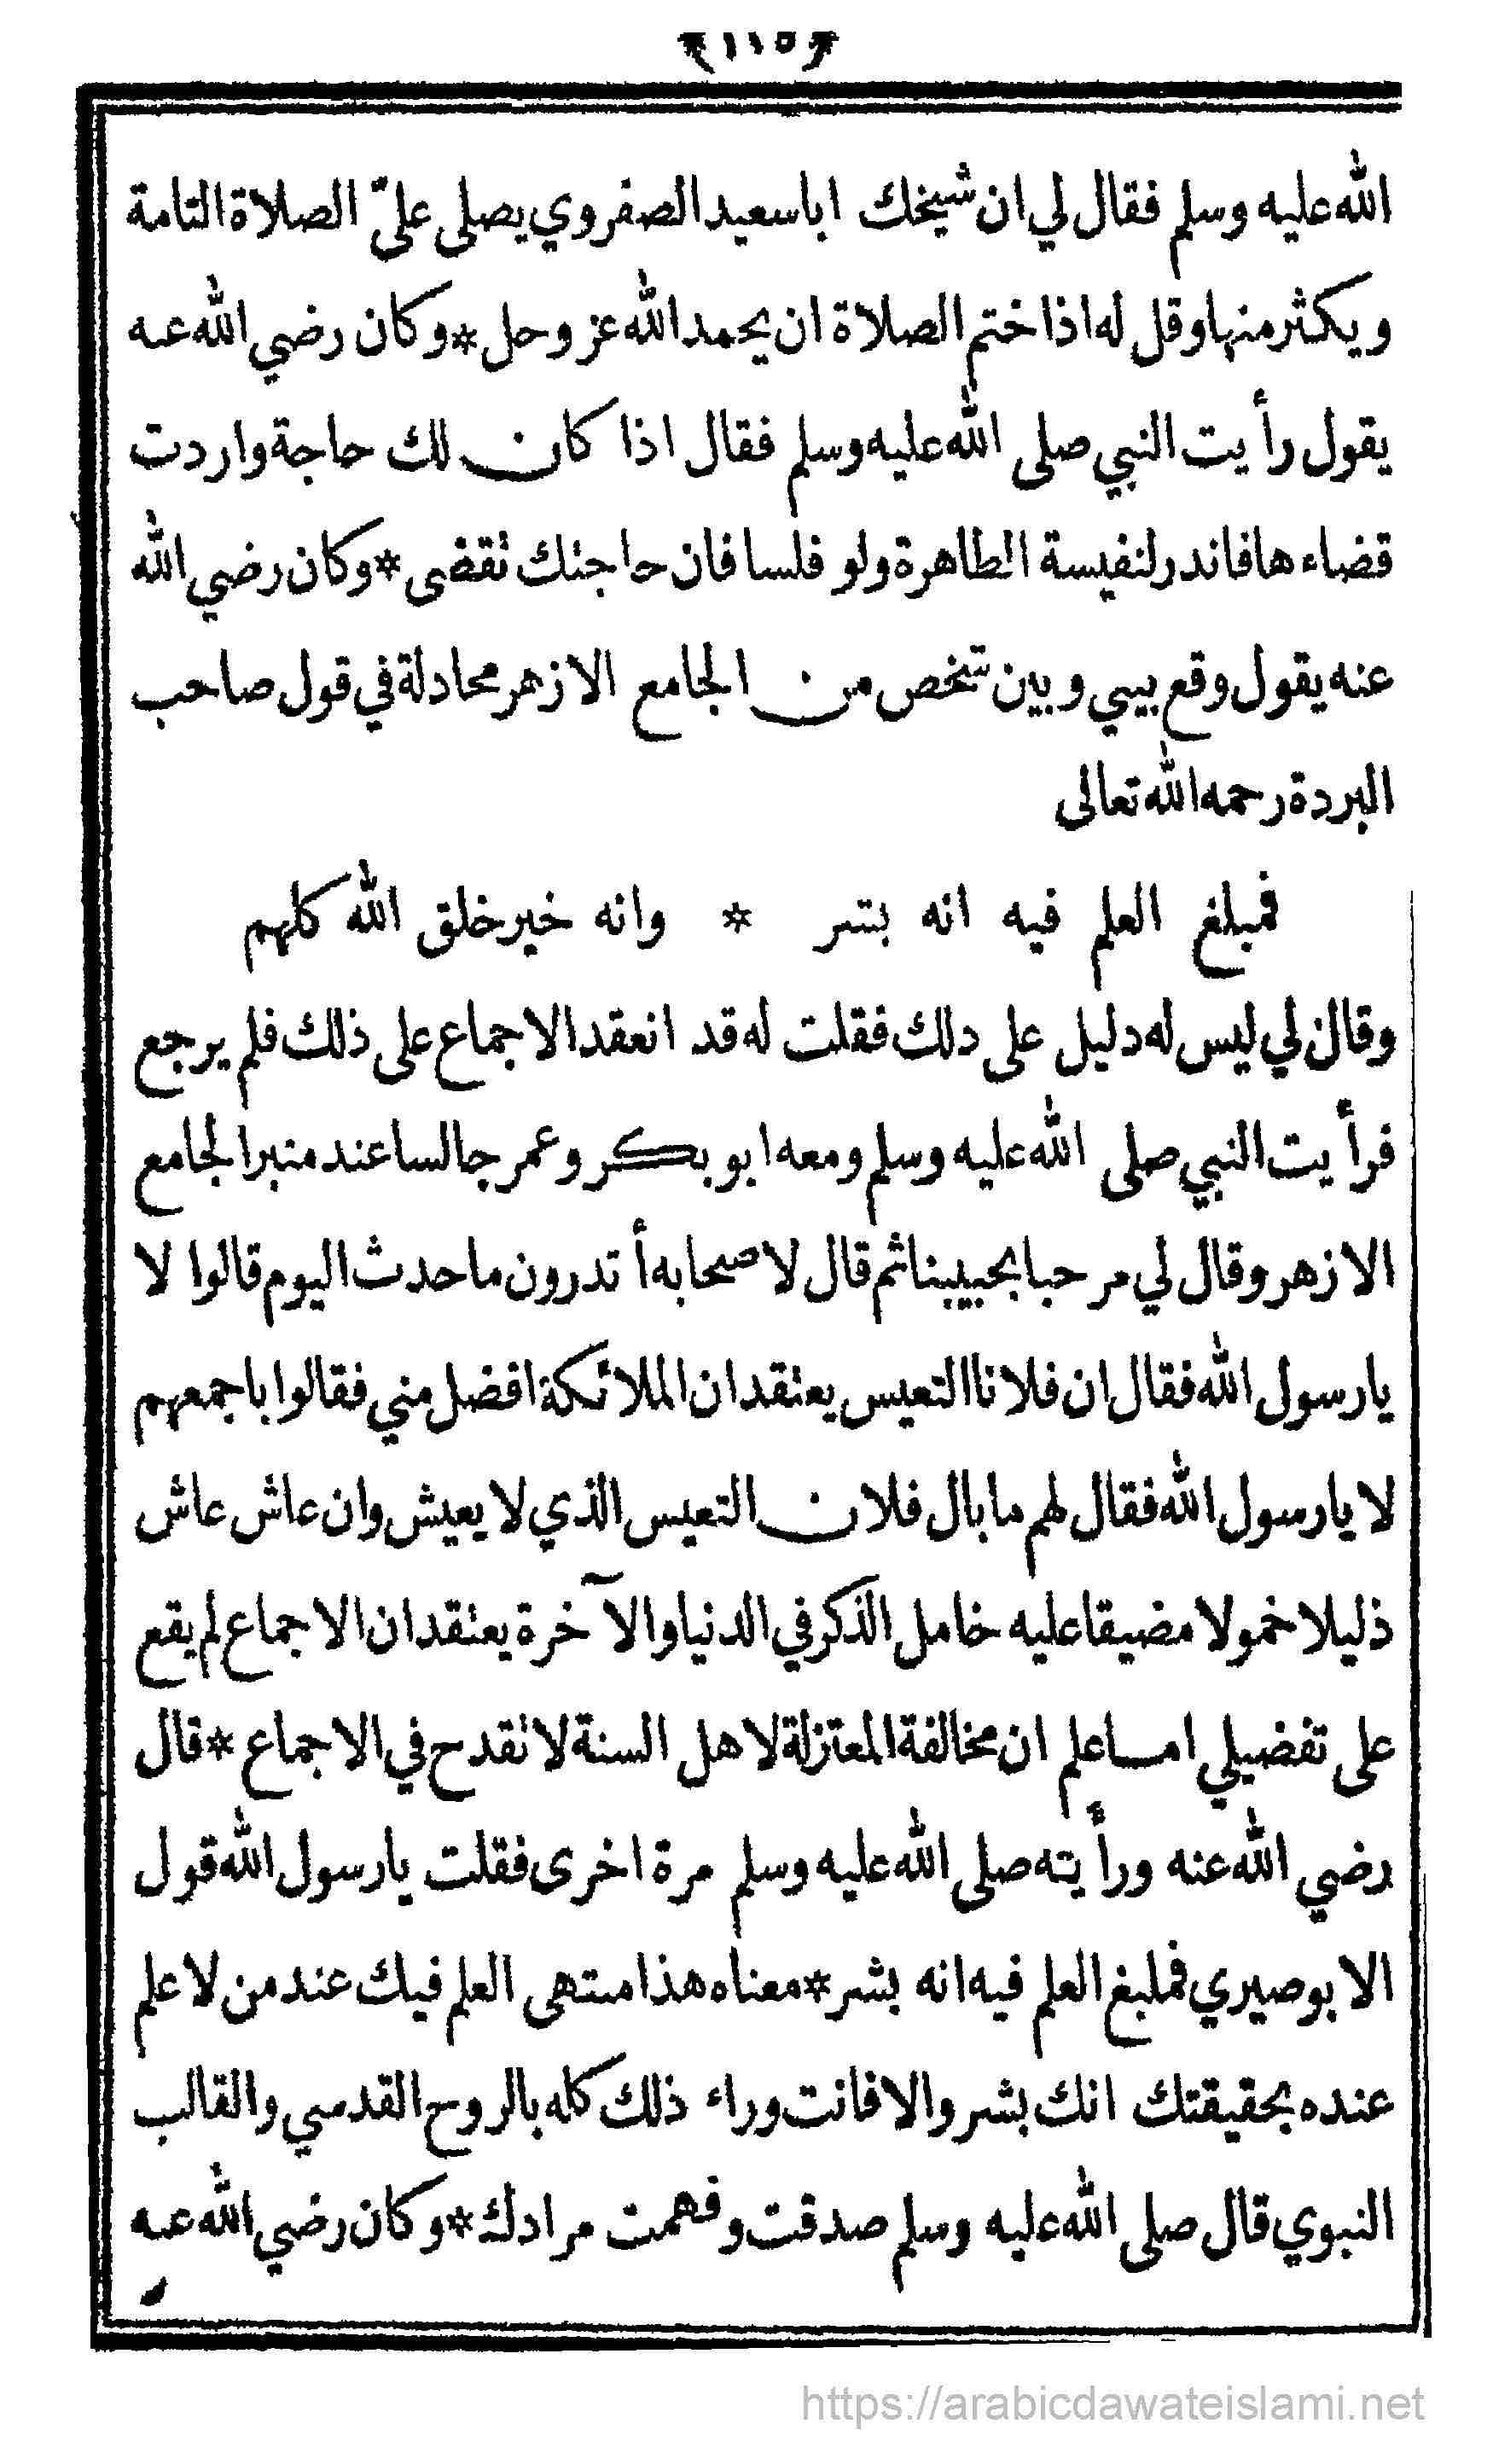 ﴿١١٥﴾
الله عليه وسلم فقال لي ان شيخك اباسعيد الصفروي يصلى عليّ الصلاة التامة
ويكثر منها وقل له اذا ختم الصلاة ان يحمد الله عز وحل * وكان رضي الله عنه
يقول رأيت النبي صلى الله عليه وسلم فقال اذا كان لك حاجة واردت
قضاءها فانذر لنفيسة الطاهرة ولو فلسا فان حاجتك تقضى * وكان رضي الله
عنه يقول وقع بيني وبين شخص من الجامع الازهر مجادلة في قول صاحب
البردة رحمه الله تعالى
فمبلغ العلم فيه انه بشر * وانه خير خلق الله كلهم
وقال لي ليس له دليل على دلك فقلت له قد انعقد الاجماع على ذلك فلم يرجع
فرأيت النبي صلى الله عليه وسلم ومعه ابو بكر وعمر جالسا عند منبر الجامع
الازهر وقال لي مرحبا بحبيبنا ثم قال لاصحابه أتدرون ماحدث اليوم قالوا لا
يارسول الله فقال ان فلانا التعيس يعتقد ان الملائكة افضل مني فقالوا باجمعهم
لا يارسول الله فقال لهم مابال فلان التعيس الذي لا يعيش وان عاش عاش
ذليلا خمولا مضيقا عليه خامل الذكر في الدنيا والآخرة يعتقد ان الاجماع لم يقع
على تفضيلي اما علم ان مخالفة المعتزلة لاهل السنة لا تقدح في الاجماع * قال
رضي الله عنه ورأيته صلى الله عليه وسلم مرة اخرى فقلت يارسول الله قول
الابوصيري فمبلغ العلم فيه انه بشر * معناه هذا منتهى العلم فيك عند من لا علم
عنده بحقيقتك انك بشر والا فانت وراء ذلك كله بالروح القدسي والقالب
النبوي قال صلى الله عليه وسلم صدقت وفهمت مرادك * وكان رضي الله عنه
https://arabicdawateislami.net